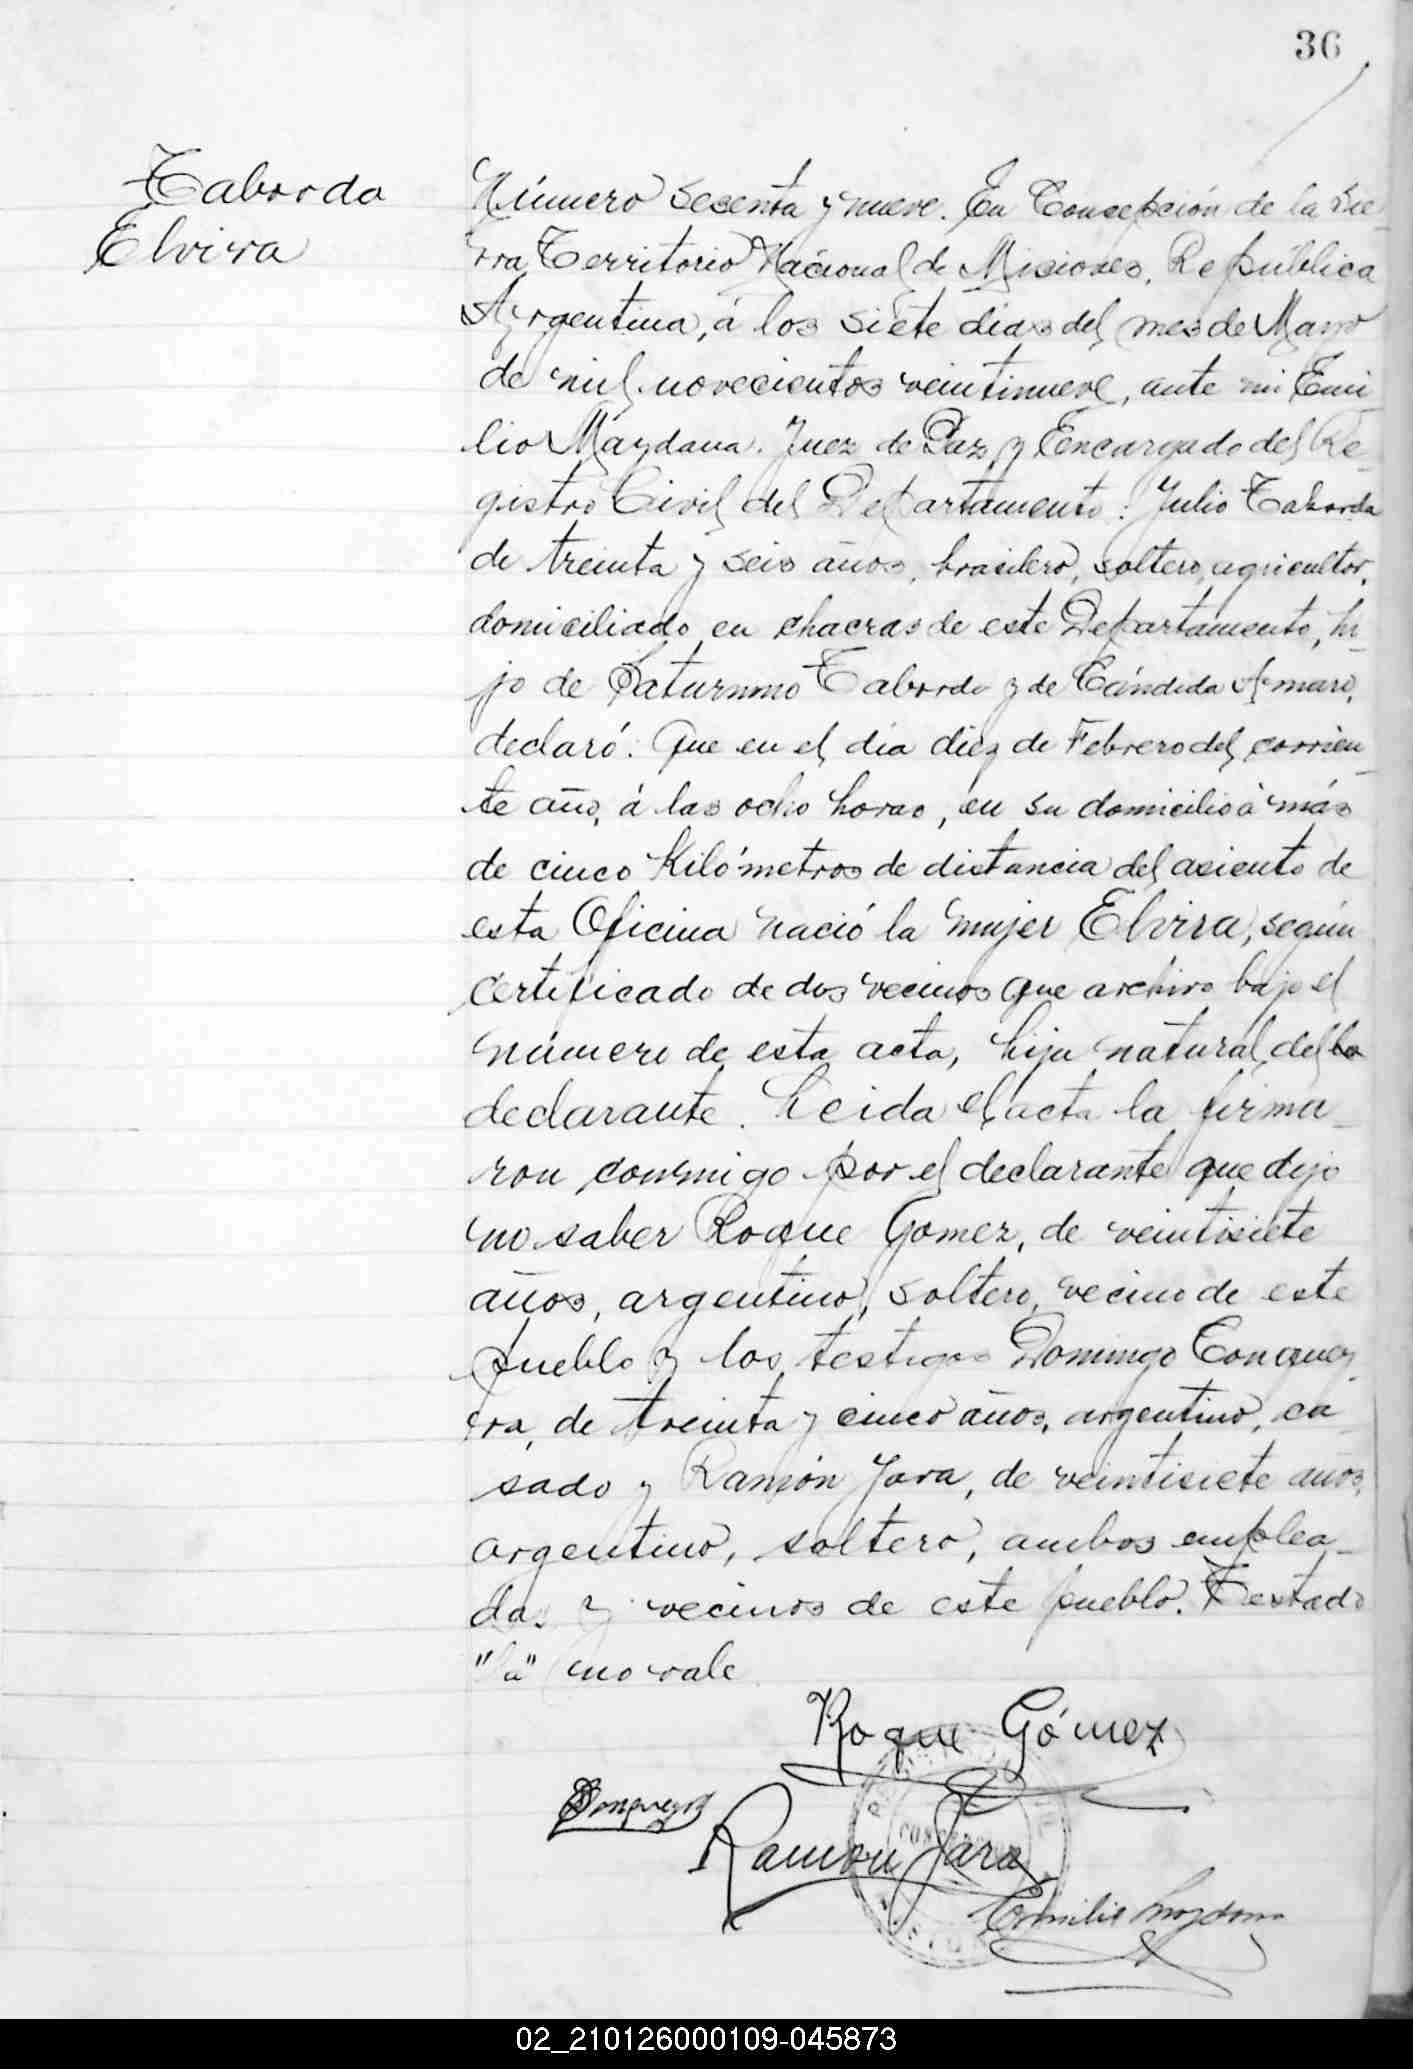 36
Taborda
Elvira
Número sesenta y nueve. En Concepción de la Sie-
rra Territorio Nacional de Misiones, República
Argentina, á los siete dias del mes de Mayo
de mil novecientos veintinueve, ante mi Emi
lio Maydana. Juez de Paz y Encargado del Re-
gistro Civil del Departamento: Julio Taborda
de treinta y seis años, brasilero, soltero, agricultor,
domiciliado en chacras de este Departamento, hi-
jo de Saturnino Taborda y de Cándida Amaro,
declaró: Que en el dia diez de Febrero del corrien-
te año, á las ocho horas, en su domicilio á más
de cinco Kilómetros de distancia del asiento de
esta Oficina nació la mujer Elvira, según
certificado de dos vecinos que archivo bajo el
número de esta acta, hija natural del la
declarante. Leida el acta la firma-
ron conmigo por el declarante que dijo
no saber Roque Gomez, de veintisiete
años, argentino, soltero, vecino de este
pueblo y los testigos Domingo Conquey-
ra, de treinta y cinco años, argentino, ca-
sado y Ramón Jara, de veintisiete años,
argentino, soltero, ambos emplea-
dos y vecinos de este pueblo. Testado
"la" no vale
Roque Gómez
Ramon Jara
Emilio Maydana
02_210126000109-045873